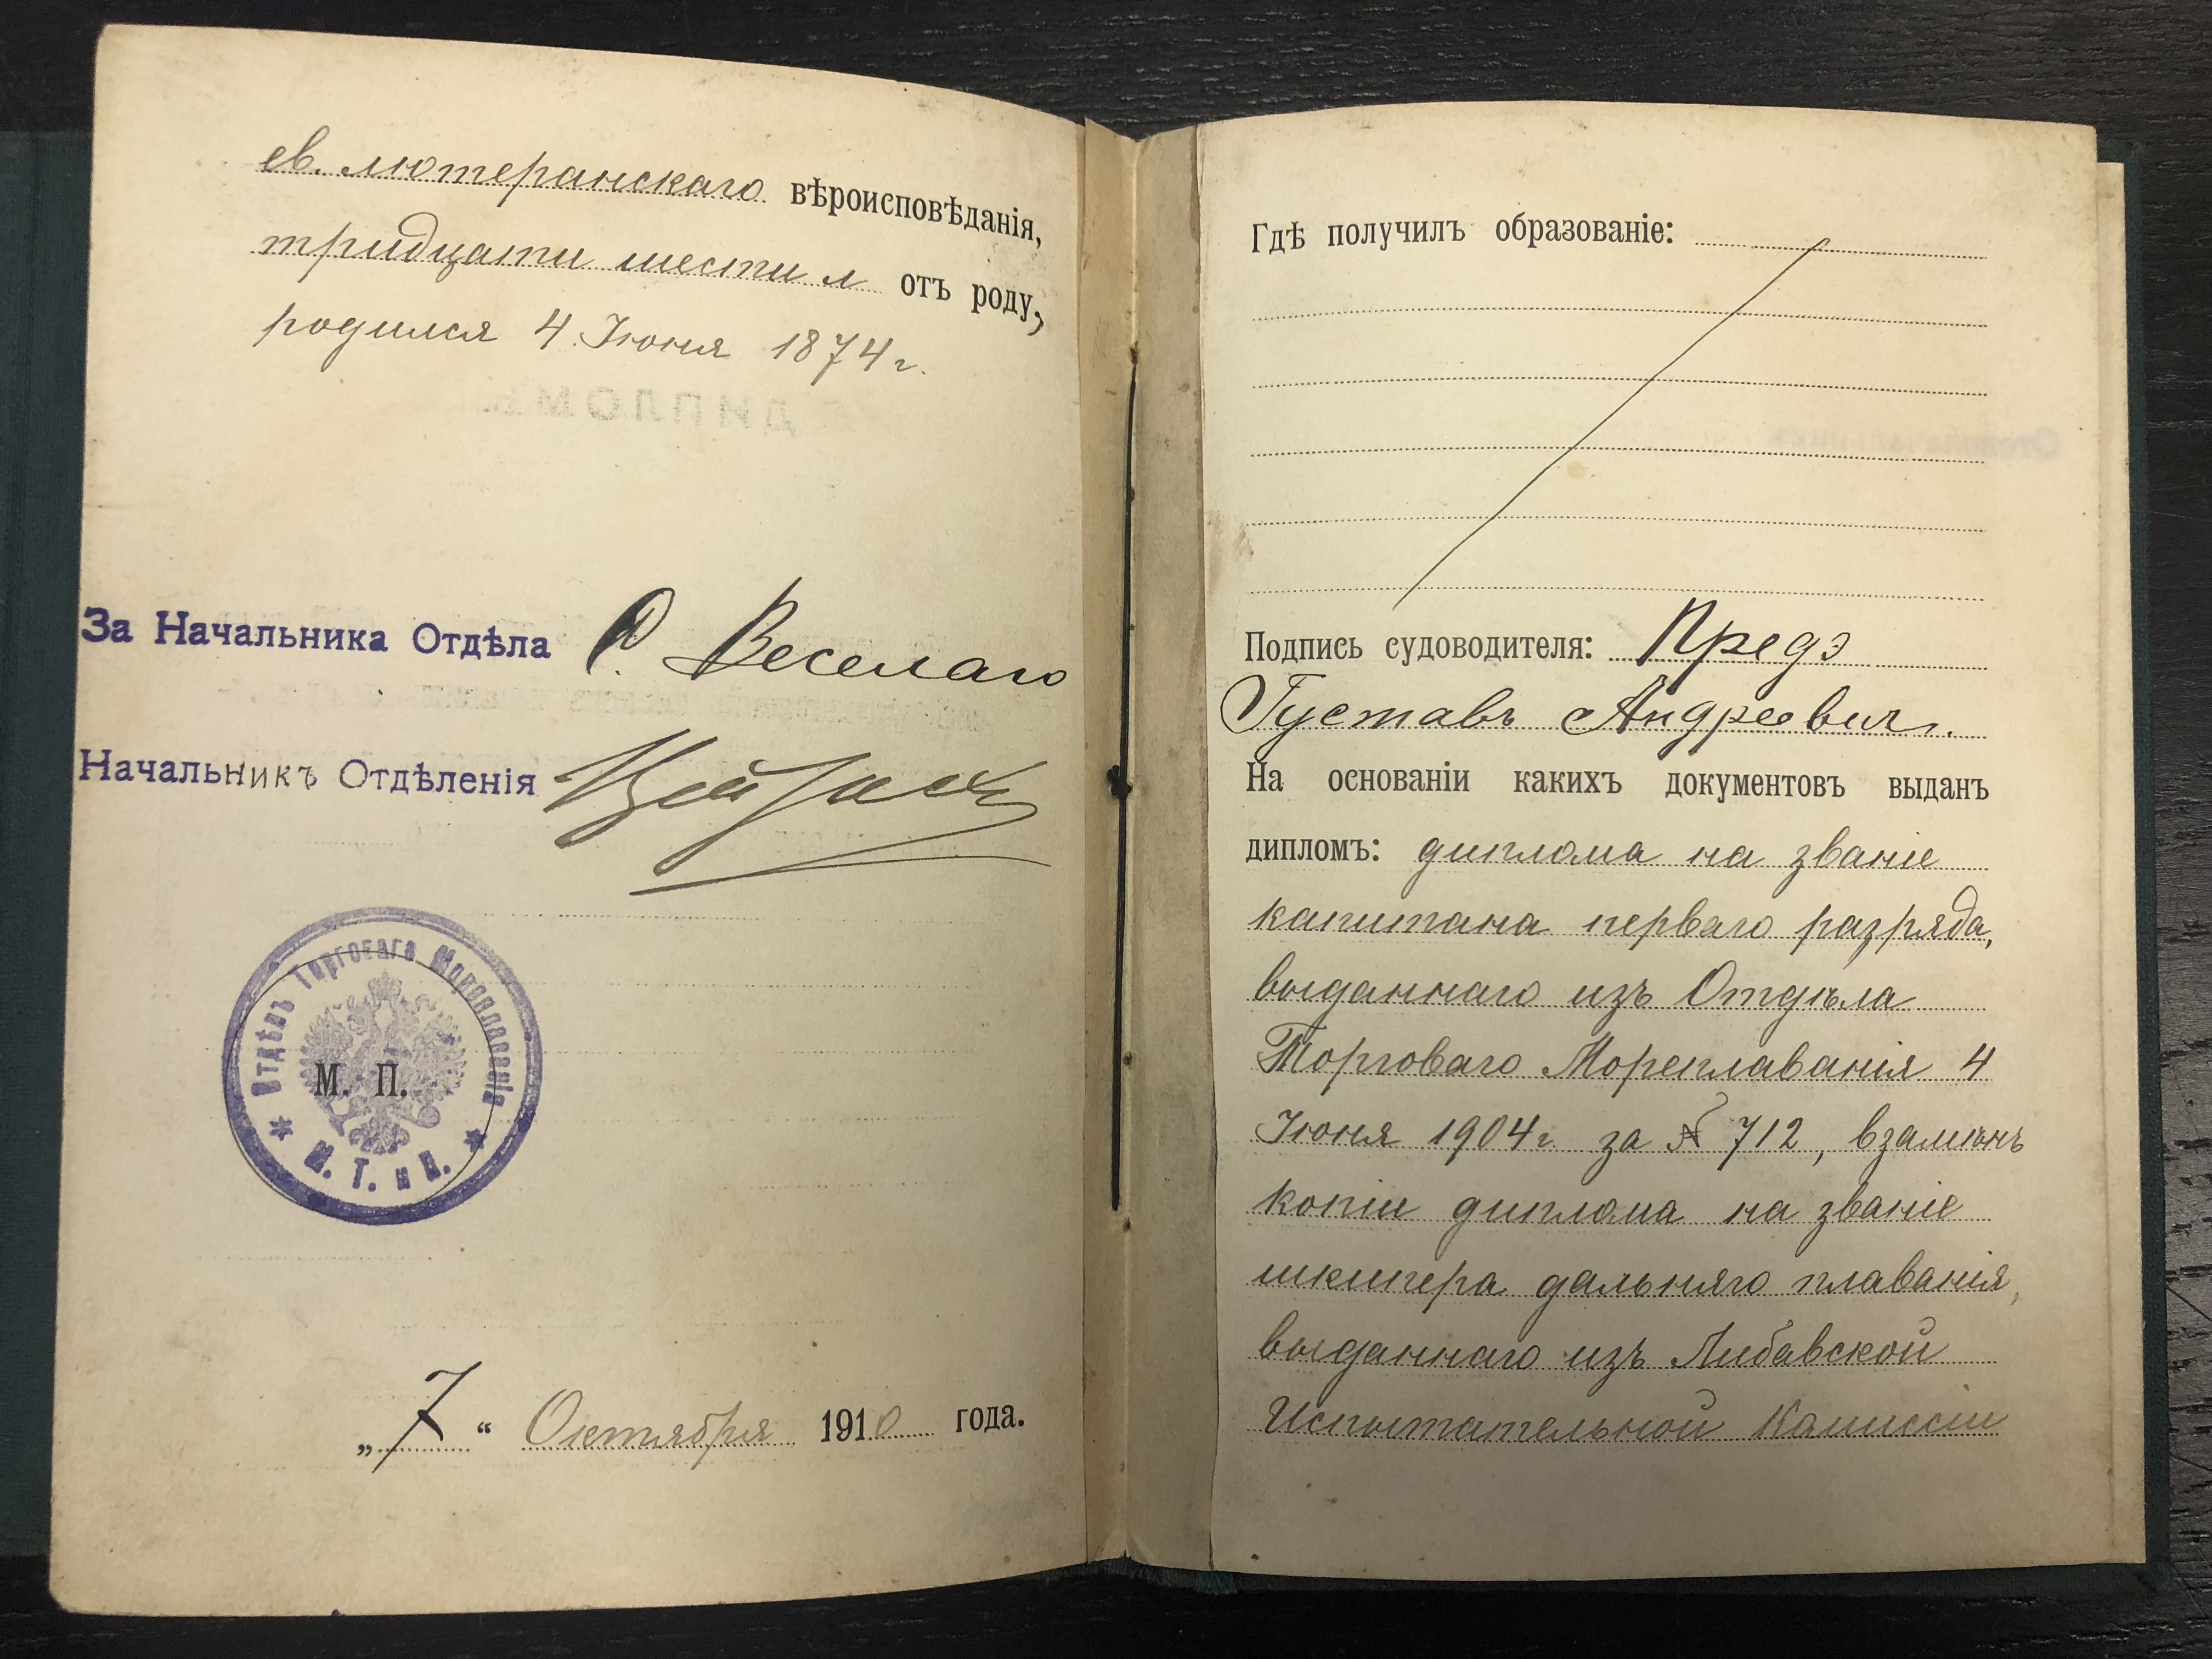 ев. лютеранскаго вѣроисповѣданія,
тридцати шести л отъ роду,
родился 4 Іюня 1874 г.
За Начальника Отдѣла Веселаго
Начальникъ Отдѣленія
Отдѣлъ Торговаго Мореплаванія
М. П.
М. Т. и П.
„7“ Октября 1910 года.
Гдѣ получилъ образованіе:
Подпись судоводителя: Предэ
Густавъ Андреевич.
На основаніи какихъ документовъ выданъ
дипломъ: диплома на званіе
капитана перваго разряда,
выданнаго изъ Отдѣла
Торговаго Мореплаванія 4
Іюня 1904 г за № 712, взамѣнъ
копіи диплома на званіе
шкипера дальняго плаванія,
выданнаго изъ Либавской
Испытательной Комиссіи